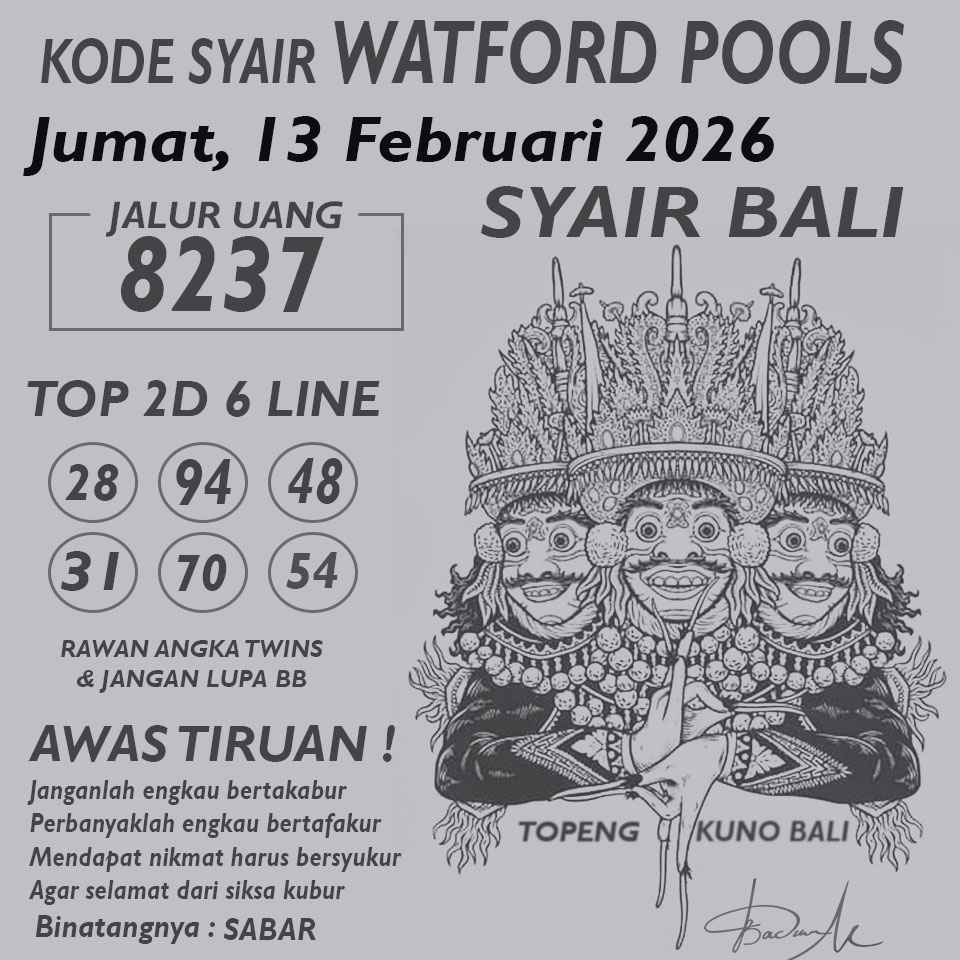 KODE SYAIR WATFORD POOLS
Jumat, 13 Februari 2026
SYAIR BALI
JALUR UANG
8237
TOP 2D 6 LINE
28 94 48
31 70 54
RAWAN ANGKA TWINS
& JANGAN LUPA BB
AWAS TIRUAN !
Janganlah engkau bertakabur
Perbanyaklah engkau bertafakur
Mendapat nikmat harus bersyukur
Agar selamat dari siksa kubur
Binatangnya : SABAR
TOPENG KUNO BALI